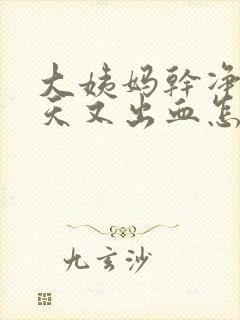 大姨妈幹净
天又出血怎
九玄沙